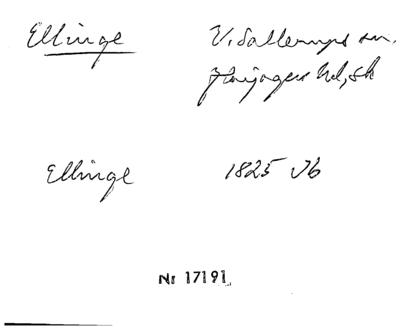 Ellinge V. Sallerups sn,
Harjagers hd, Sk
Ellinge 1825 Jb
Nr 17191